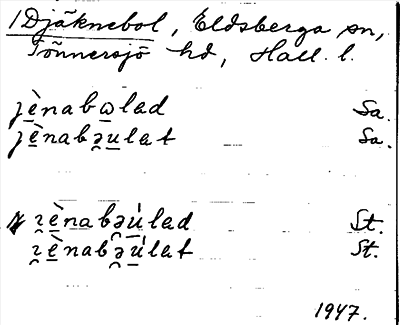 1 Djäknebol, Eldsberga sn,
Tönnersjö hd, Hall. l.
jènabωlad Sa.
jè̱nabə̯u̱lat Sa.
ɀè̱na̱bə̯ú̱lad St.
ɀè̱nabə̯ú̱lat St.
1947.